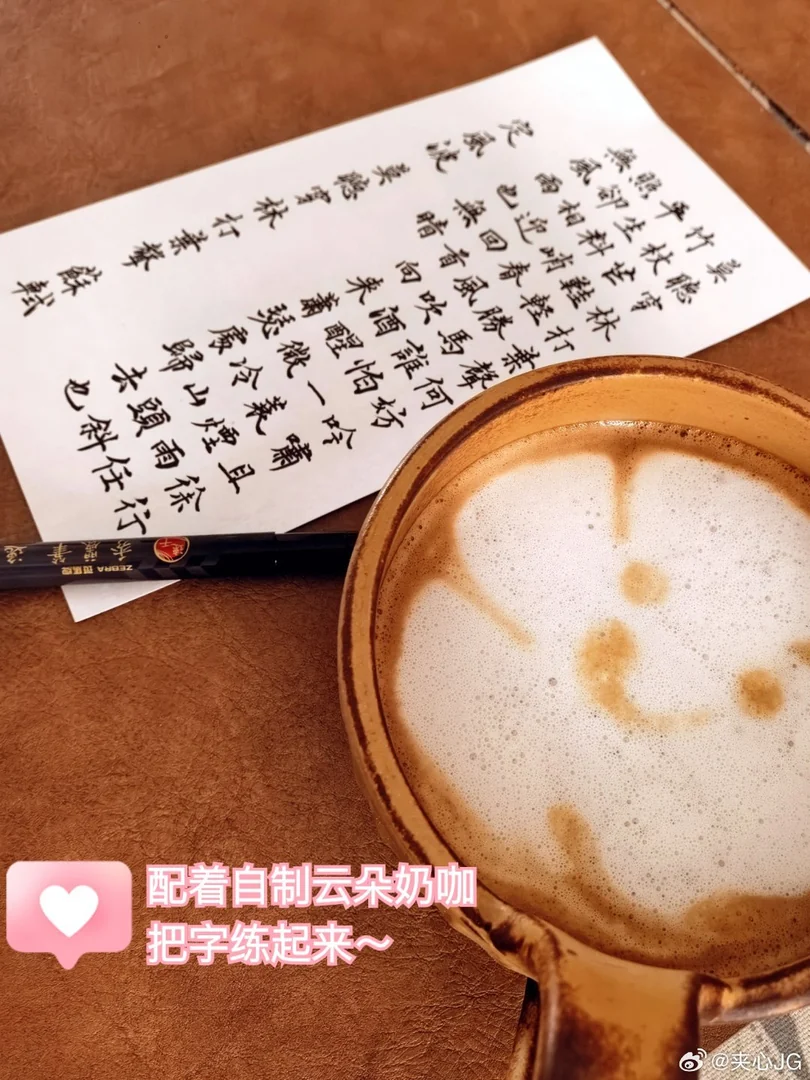 莫聽穿林打葉聲何妨吟嘯且徐行
竹杖芒鞋輕勝馬誰怕一蓑煙雨任
平生料峭春風吹酒醒微冷山頭斜
照卻相迎回首向来蕭瑟處歸去也
無風雨也無暗
定風波 莫聽穿林打葉聲 蘇軾
ZEBRA
配着自制云朵奶咖
把字练起来～
@夹心JG